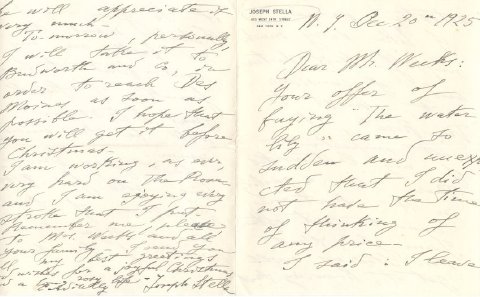 JOSEPH STELLA
NEW YORK, N. Y.
N. Y. Dec. 20 1925
Dear Mr. Weeks:
Your offer of
"The water
lily" came so
sudden and unexpe
cted that I did
not have the time
of thinking of
any price.
I said: I leave
will appreciate it
very much.
Tomorrow, personally
I will take it to
Budworth and Co, in
order to reach Des
Moines as soon as
possible. I hope that
you will get it before
Christmas.
I am working, as ever
very hard on the
and I am enjoying every
stroke that I put.
Remember me please
to Mrs. Weeks and all
your family. I send you
all my best greetings
wishes for a joyful Christmas
Joseph Stella